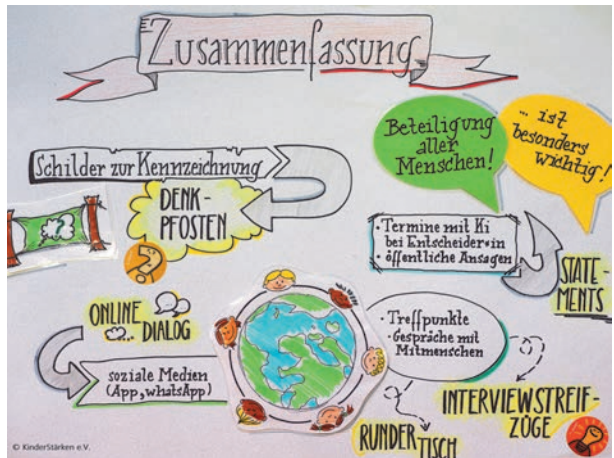 Zusammenfassung
Schilder zur Kennzeichnung
DENK-
PFOSTEN
Beteiligung
aller
Menschen!
... ist
besonders
wichtig!
• Termine mit Ki
bei Entscheider*in
• öffentliche Ansagen
STATE-
MENTS
ONLINE
DIALOG
soziale Medien
(App, whatsApp)
• Treffpunkte
• Gespräche mit
Mitmenschen
INTERVIEWSTREIF-
ZÜGE
RUNDER
TISCH
© KinderStärken e.V.